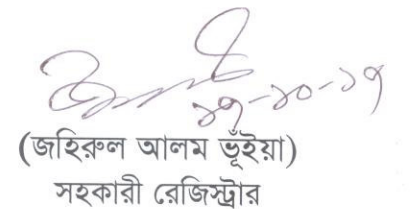 ১৭-১০-১৭
(জহিরুল আলম ভূঁইয়া)
সহকারী রেজিস্ট্রার